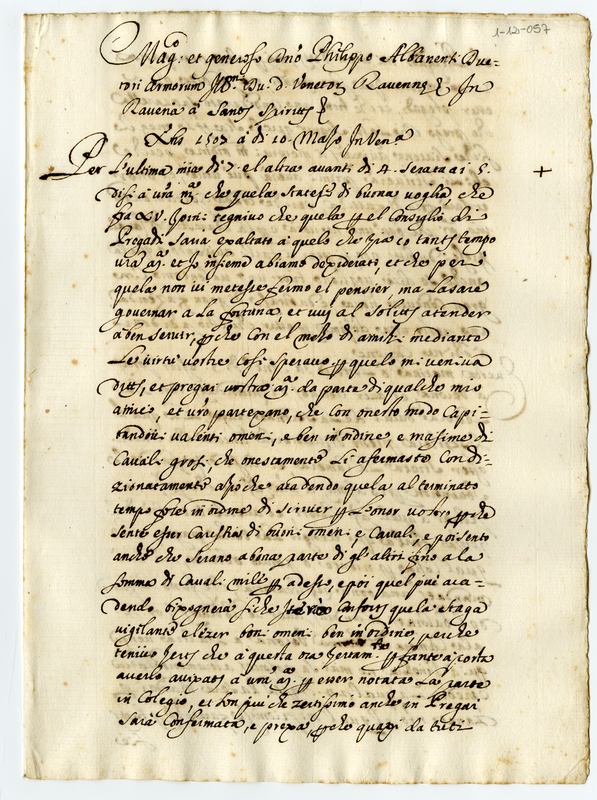 1-12-057
Mag.co et generoso Dno Philippo Albanenti Duc=
tori armorum Ill.mi Du. d. Venetor Ravenne &
Ravena a Santo Spirito &
1503 a di 10 Mazo In Ven.a
Per l'ultima mia di 7. el altra avanti di 4. serata ai 5.
disi a vra M. che quela statesse di buona voglia, che
fra XV. zorni tegnivo che quela p el Consiglio di
Pregadi saria exaltato a quelo che za co tanto tempo
vra M. et Io insieme abiamo desiderati, et che per
quela non vi metesse fermo el pensier, ma lasare
governar a la fortuna, et vuy al solito atender
a ben servir, pche con el mezo di amici mediante
le virtu vostre cosi speravo p quelo mi veniva
ditto, et pregai vostra M. da parte di qualche mio
amico, et vro partexano, che con onesto modo Capi=
tando vi valenti omeni, e ben in ordine, e masime di
Cavali grosi, che onestamente li afermaste Condi=
zionatamente apo che acadendo quela al terminato
tempo fose in ordine di scriver p l'onor vostro, pche
sento esser Carestia di buoni omeni e Cavali, e poi sento
anche che serano a bona parte di gl'altri fino a la
somma di Cavali mile p adeso, e poi quel piu aca=
dendo bisognera siche Conforto quela staga
vigilante a lezer boni omeni ben in ordine, perche
tenivo certo che a questa ora p fante a posta
averlo avixato a vra M. p esser notata la parte
in Colegio, et son piu che zertissimo anche in Pregai
sara Confirmata, e prexa, pche quaxi da tuti